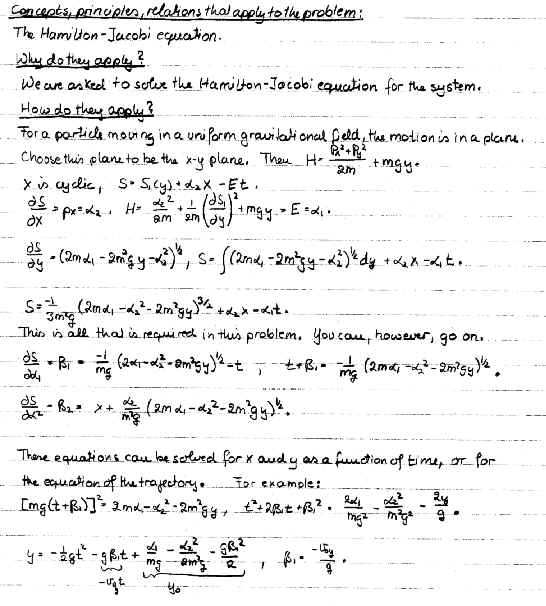 Concepts, principles, relations that apply to the problem:
The Hamilton-Jacobi equation.
Why do they apply?
We are asked to solve the Hamilton-Jacobi equation for the system.
How do they apply?
For a particle moving in a uniform gravitational field, the motion is in a plane.
Choose this plane to be the x-y plane. Then H = (Px²+Py²)/2m + mgy.
x is cyclic, S = S₁(y) + α₂x - Et.
∂S/∂x = px = α₂, H = α₂²/2m + 1/2m (∂S₁/∂y)² + mgy = E = α₁.
∂S/∂y = (2mα₁ - 2m²gy - α₂²)^½, S = ∫(2mα₁ - 2m²gy - α₂²)^½ dy + α₂x - α₁t.
S = -1/3m²g (2mα₁ - α₂² - 2m²gy)^3/2 + α₂x - α₁t.
This is all that is required in this problem. You can, however, go on.
∂S/∂α₁ = β₁ = -1/mg (2α₁ - α₂² - 2m²gy)^½ - t, t + β₁ = -1/mg (2mα₁ - α₂² - 2m²gy)^½.
∂S/∂α2 = β₂ = x + α₂/m²g (2mα₁ - α₂² - 2m²gy)^½.
These equations can be solved for x and y as a function of time, or for
the equation of the trajectory. For example:
[mg(t+β₁)]² = 2mα₁ - α₂² - 2m²gy, t² + 2β₁t + β₁² = 2α₁/mg² - α₂²/m²g² - 2y/g.
y = -½gt² - gβ₁t + α₁/mg - α₂²/2m²g - gβ₁²/2, β₁ = -v₀y/g.
-v₀t y₀